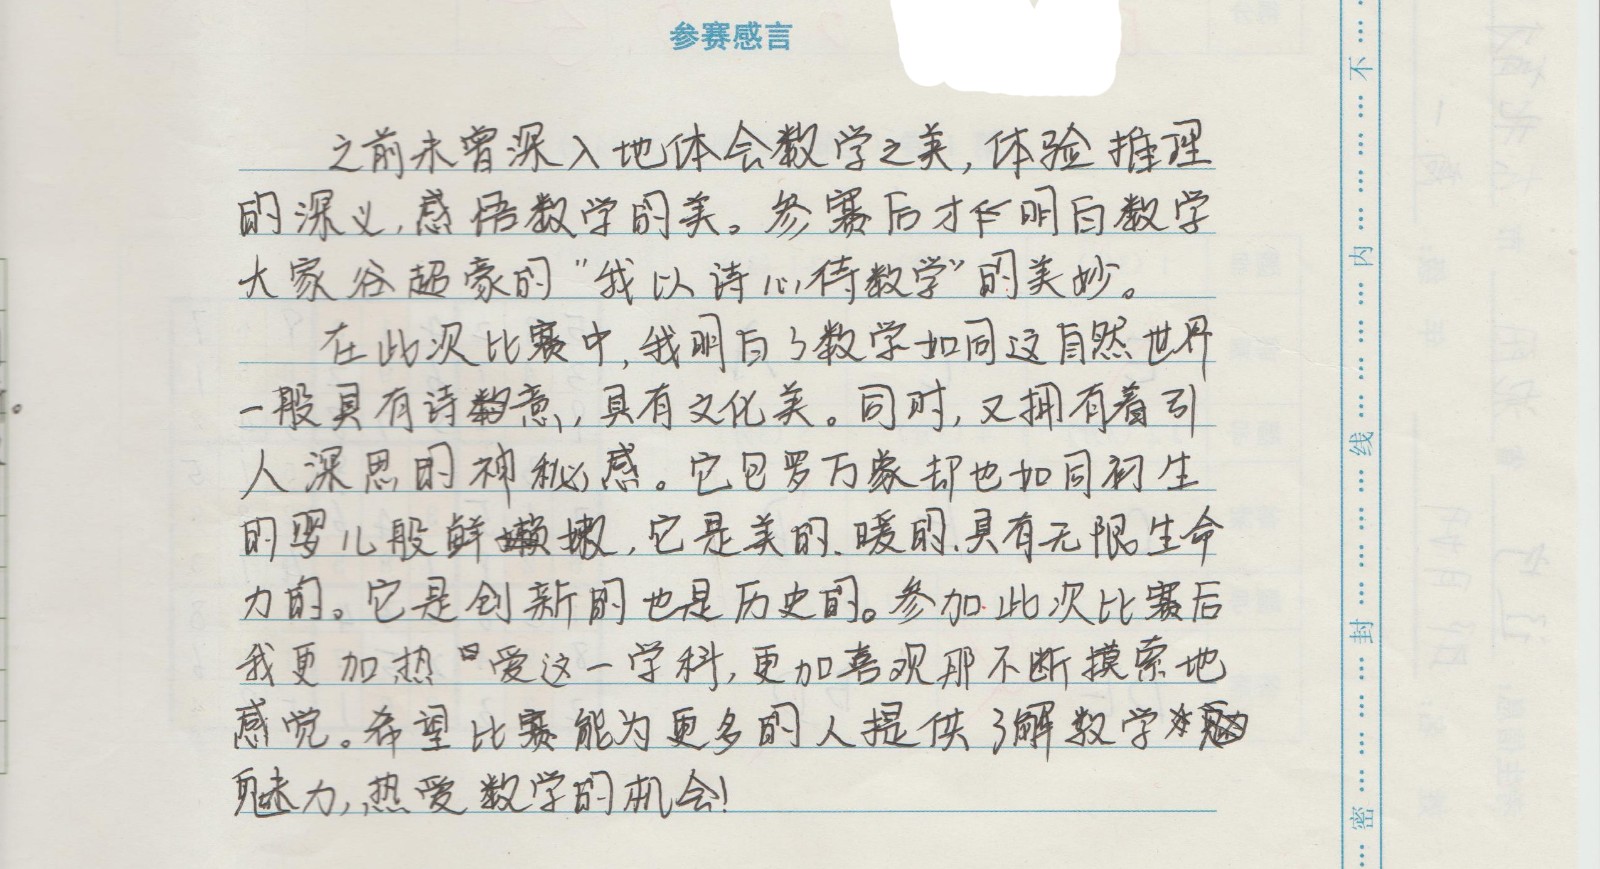 参赛感言
之前未曾深入地体会数学之美,体验推理
的深义,感悟数学的美。参赛后才明白数学
大家谷超豪的"我以诗心待数学"的美妙。
在此次比赛中,我明白了数学如同这自然世界
一般具有诗意,具有文化美。同时,又拥有着引
人深思的神秘感。它包罗万象却也如同初生
的婴儿般鲜嫩,它是美的、暖的、具有无限生命
力的。它是创新的也是历史的。参加此次比赛后
我更加热爱这一学科,更加喜欢那不断摸索地
感觉。希望比赛能为更多的人提供了解数学
魅力,热爱数学的机会!
密 封 线 内 不